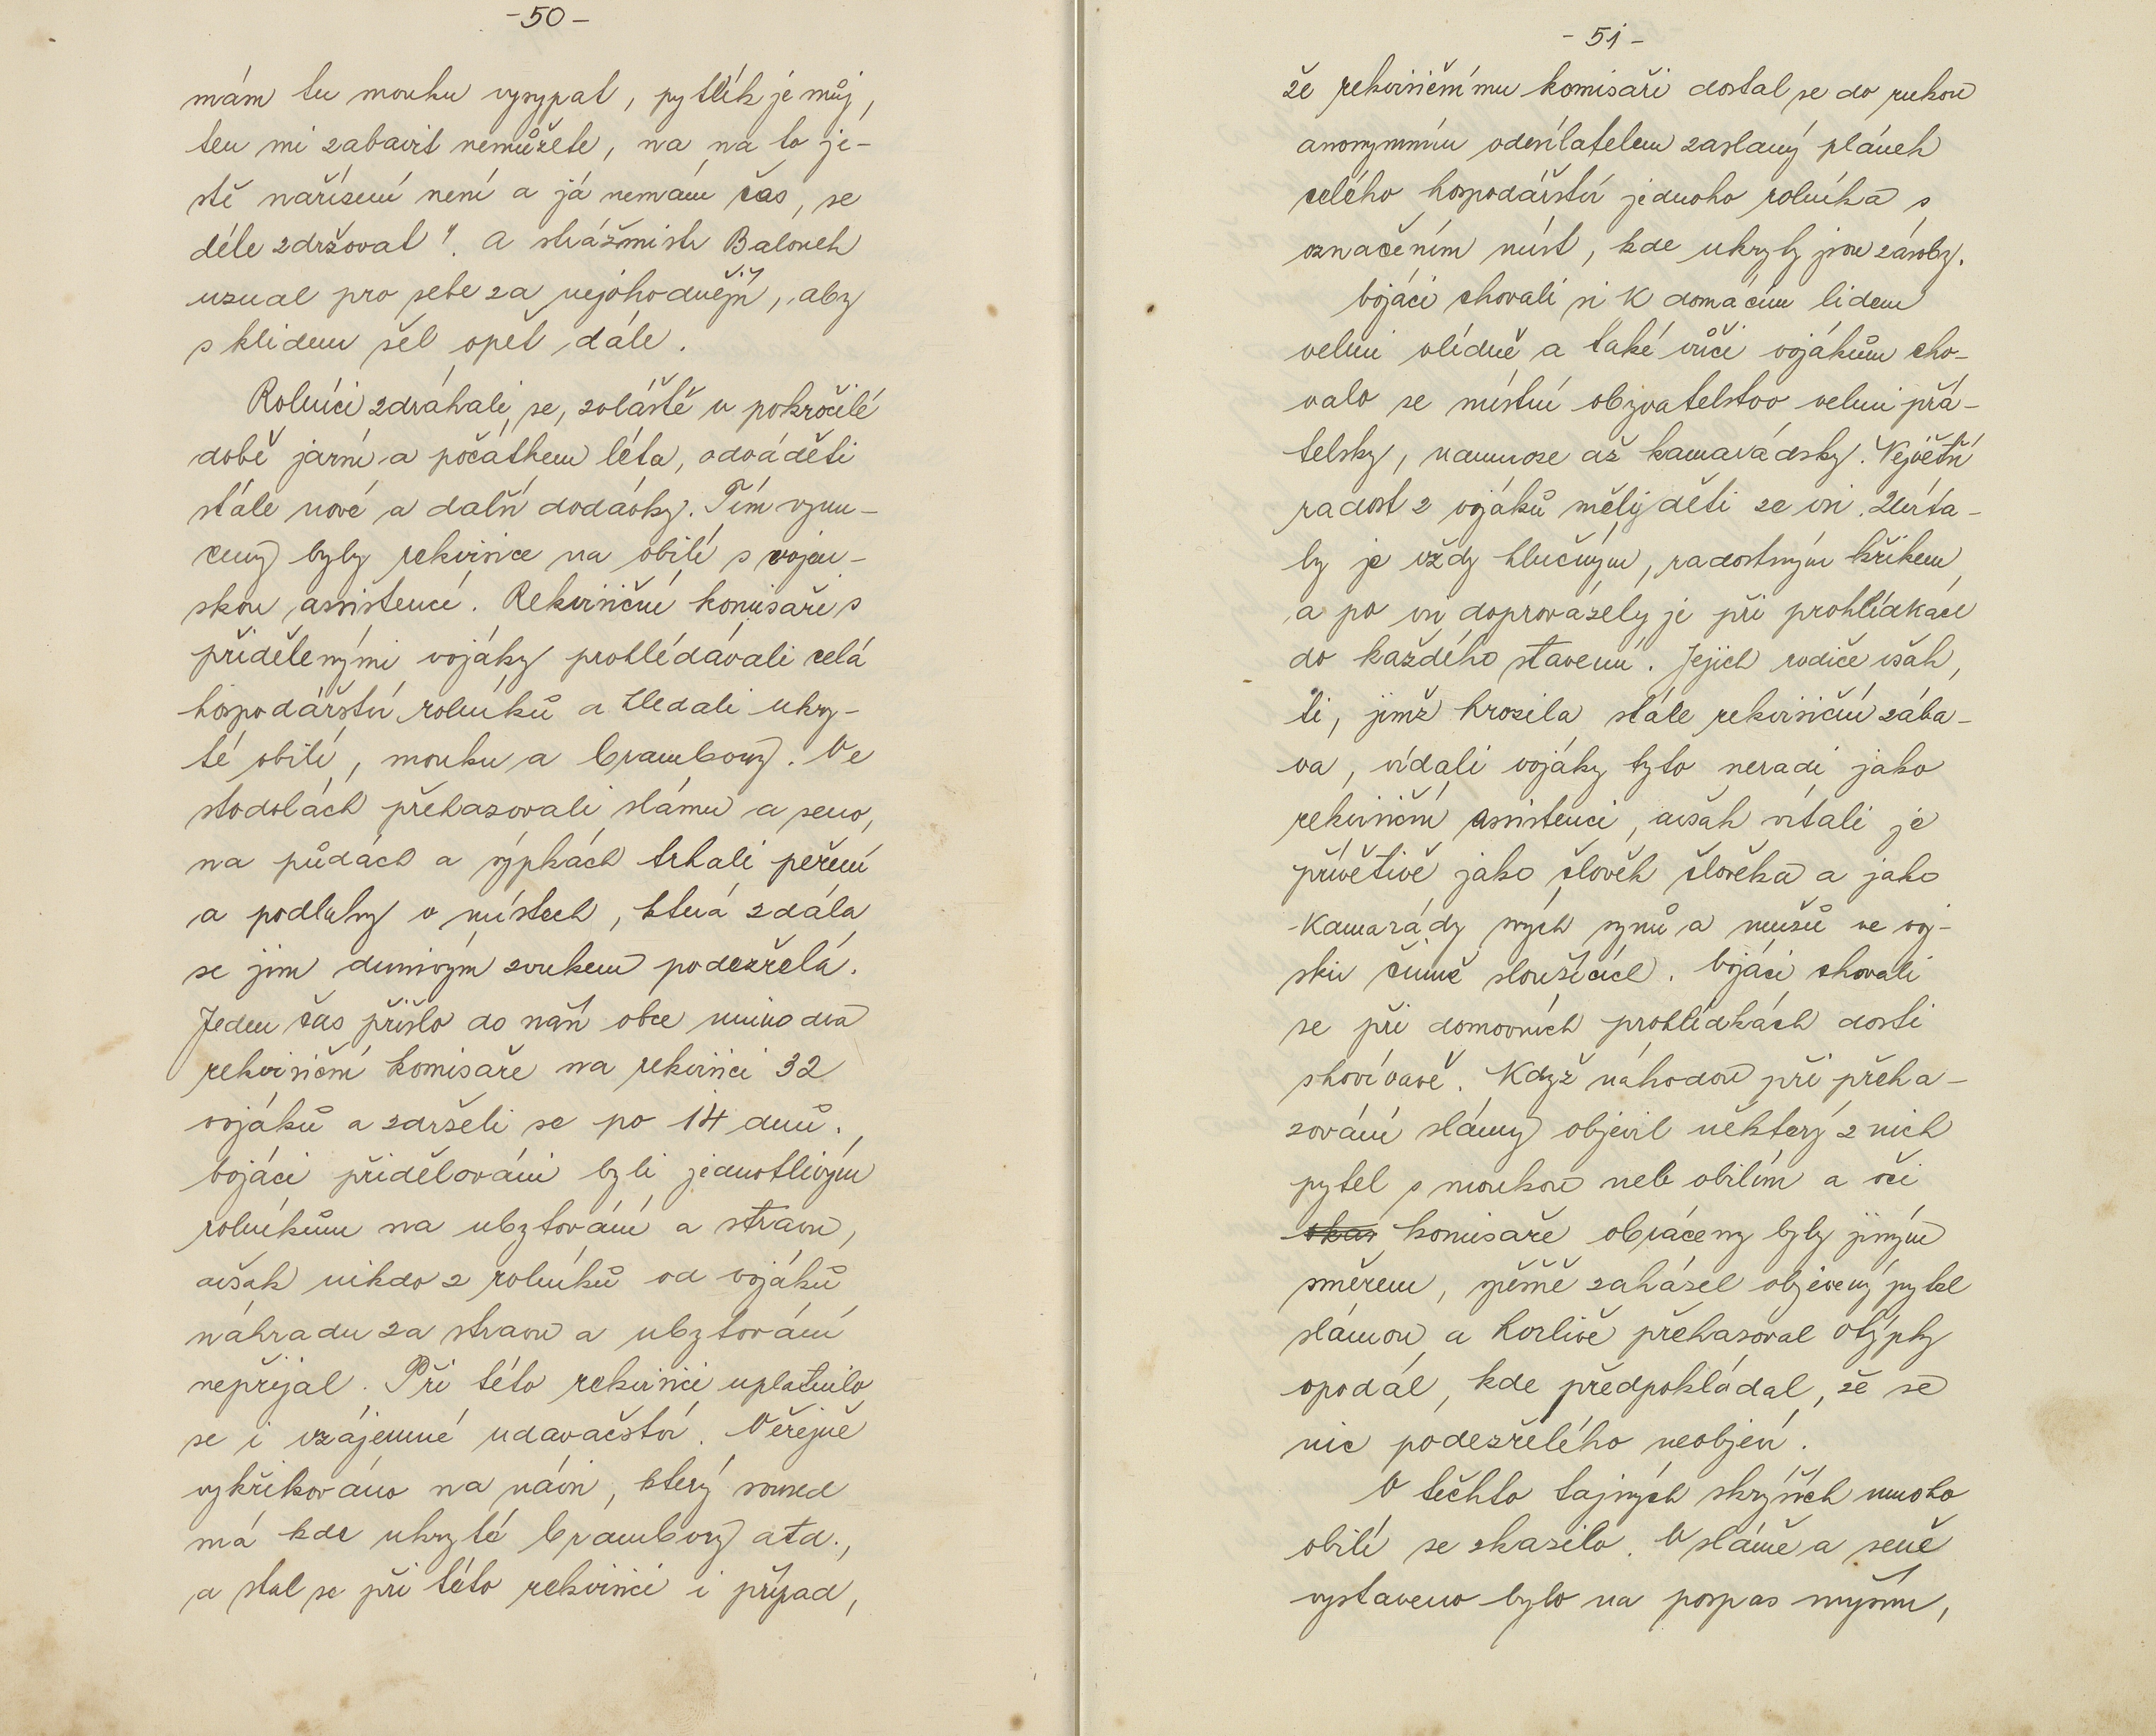 -50-
mám tu mouku vysypat, pytlík je můj,
ten mi zabavit nemůžete, na na to je-
stě nařízení není a já nemám čas, se
déle zdržovat". A strážmistr Balounek
uznal pro sebe za nejvhodnější, aby
s klidem šel opět dále.
Rolníci zdráhali se, zvláště v pokročilé
době jarní a počátkem léta, odváděti
stále nové a další dodávky. Tím vynu-
ceny byly rekvisice na obilí s vojen-
skou assistencí. Rekvisiční komisaři s
přidělenými vojáky prohlédávali celá
hospodářství rolníků a hledali ukry-
té obilí, mouku a brambory. Ve
stodolách přehazovali slámu a seno,
na půdách a sýpkách trhali peření
a podlahy v místech, která zdála
se jim dunivým zvukem podezřelá.
Jeden čas přišlo do naší obce mimo dva
rekvisiční komisaře na rekvisici 32
vojáků a zdrželi se po 14 dnů.
Vojáci přidělováni byli jednotlivým
rolníkům na ubytování a stravu,
avšak nikdo z rolníků od vojáků
náhradu za stravu a ubytování
nepřijal. Při této rekvisici uplatnilo
se i vzájemné udavačství. Veřejně
vykřikováno na návsi, který soused
má kde ukryté brambory atd.,
a stal se při této rekvisici i případ,
- 51 -
že rekvisičnímu komisaři dostal se do rukou
anonymním odesílatelem zaslaný plánek
celého hospodářství jednoho rolníka s
označením míst, kde ukryty jsou zásoby.
Vojáci chovali si k domácím lidem
velmi vlídně a také vůči vojákům cho-
valo se místní obyvatelstvo velmi přá-
telsky, namnoze až kamarádsky. Největší
radost z vojáků měly děti ze vsi. Uvíta-
ly je vždy hlučným, radostným křikem
a po vsi doprovázely je při prohlídkách
do každého stavení. Jejich rodiče však,
ti, jimž hrozila stále rekvisiční zába-
va, vídali vojáky tyto neradi jako
rekvisiční assistenci, avšak vítali je
přívětivě jako člověk člověka a jako
kamarády svých synů a mužů ve voj-
sku činně sloužících. Vojáci chovali
se při domovních prohlídkách dosti
shovívavě. Když náhodou při přeha-
zování slámy objevil některý z nich
pytel s moukou neb obilím a oči
komisaře obráceny byly jiným
směrem, zpěšně zaházel objevený pytel
slámou a horlivě přehazoval otýpky
opodál, kde předpokládal, že se
nic podezřelého neobjeví.
V těchto tajných skrýších mnoho
obilí se zkazilo. V slámě a seně
vystaveno bylo na pospas myším,